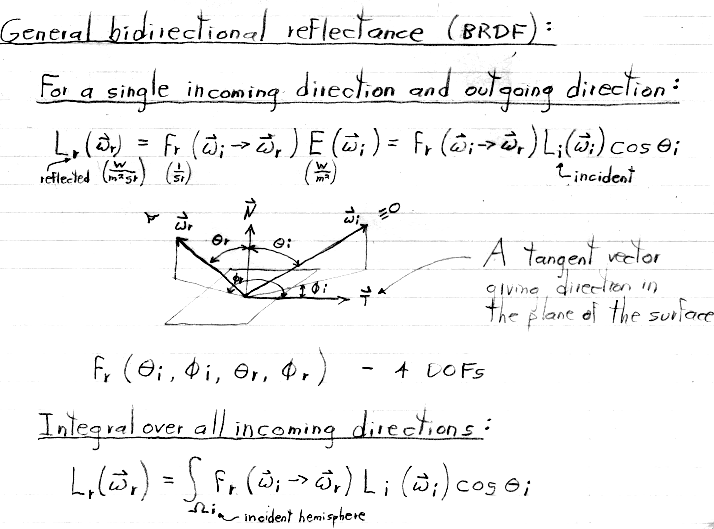 General bidirectional reflectance (BRDF):
For a single incoming direction and outgoing direction:
L_r(ω⃗_r) = f_r (ω⃗_i → ω⃗_r) E(ω⃗_i) = f_r (ω⃗_i → ω⃗_r) L_i(ω⃗_i) cos θ_i
reflected (W/m² sr) (1/sr) (W/m²) incident
ω⃗_r N⃗ ω⃗_i
θ_r θ_i
ϕ_r ϕ_i T⃗
A tangent vector
giving direction in
the plane of the surface
f_r (θ_i, ϕ_i, θ_r, ϕ_r) - 4 DOFs
Integral over all incoming directions:
L_r(ω⃗_r) = ∫ f_r (ω⃗_i → ω⃗_r) L_i (ω⃗_i) cos θ_i
Ω_i incident hemisphere